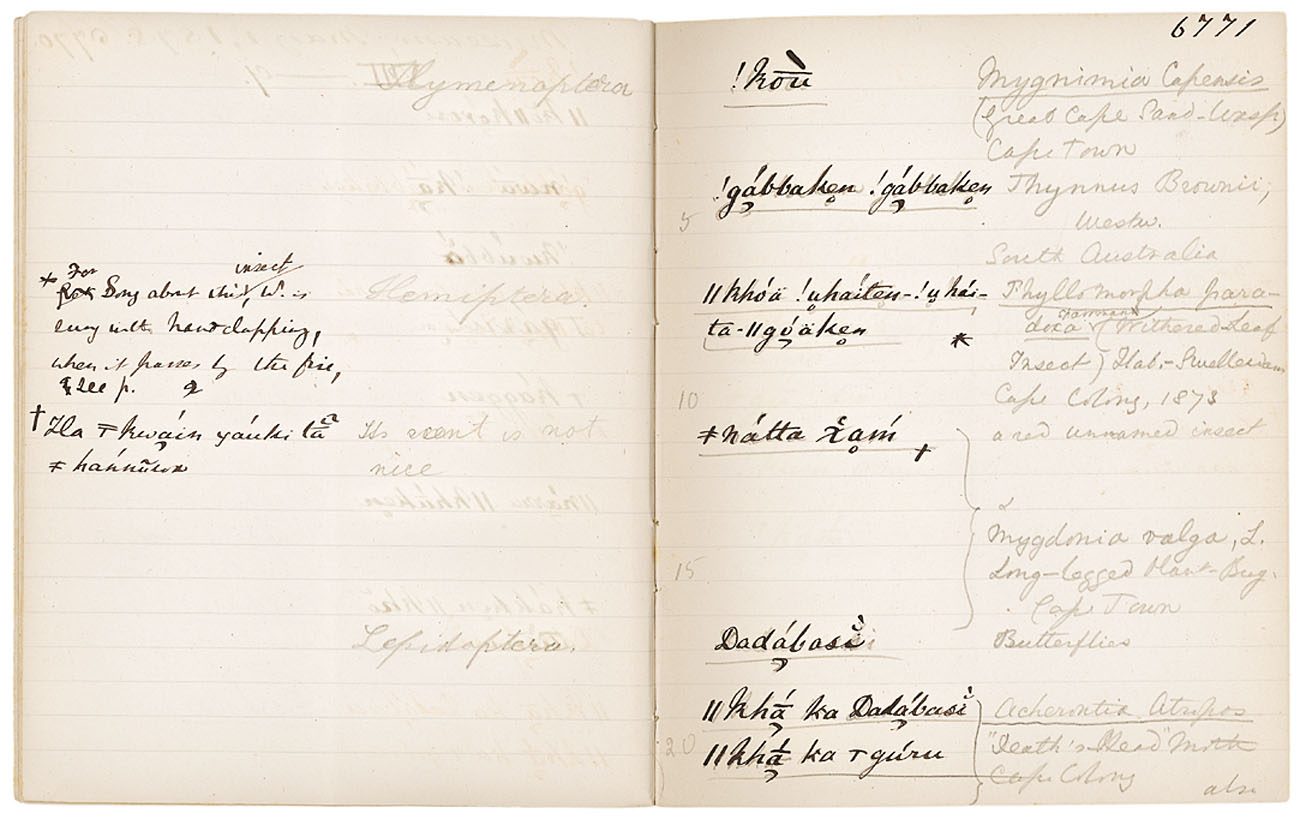 Hymenoptera
* For Song about this insect, W. is
easy with handclapping,
when it passes by the fire,
see p.
Hemiptera.
† Ha ǂkwái̭n yáuki tā̃
ǂhánnũwa
Its scent is not
nice
Lepidoptera.
6771
!kòū
Mygnimia Capensis
(Great Cape Sand-Wasp)
Cape Town
!gábbaken !gábbaken
Thynnus Brownii,
5
Westw.
South Australia
ǁkhóä !u̯háiten-!u̯hái-
Phyllomorpha para-
ta-ǁgóäken *
doxa (Withered Leaf
Insect) Hab:- Swellendam
10
Cape Colony, 1873
ǂnátta †
a red unnamed insect
Mygdonia valga, L.
15
Long-legged Plant-Bug.
Cape Town
Dadábasi
Butterflies
ǁkhā́ ka Dadábasi
Acherontia Atropos
20
ǁkhā́ ka ǂgúru
"Death's-Head" Moth
Cape Colony
also